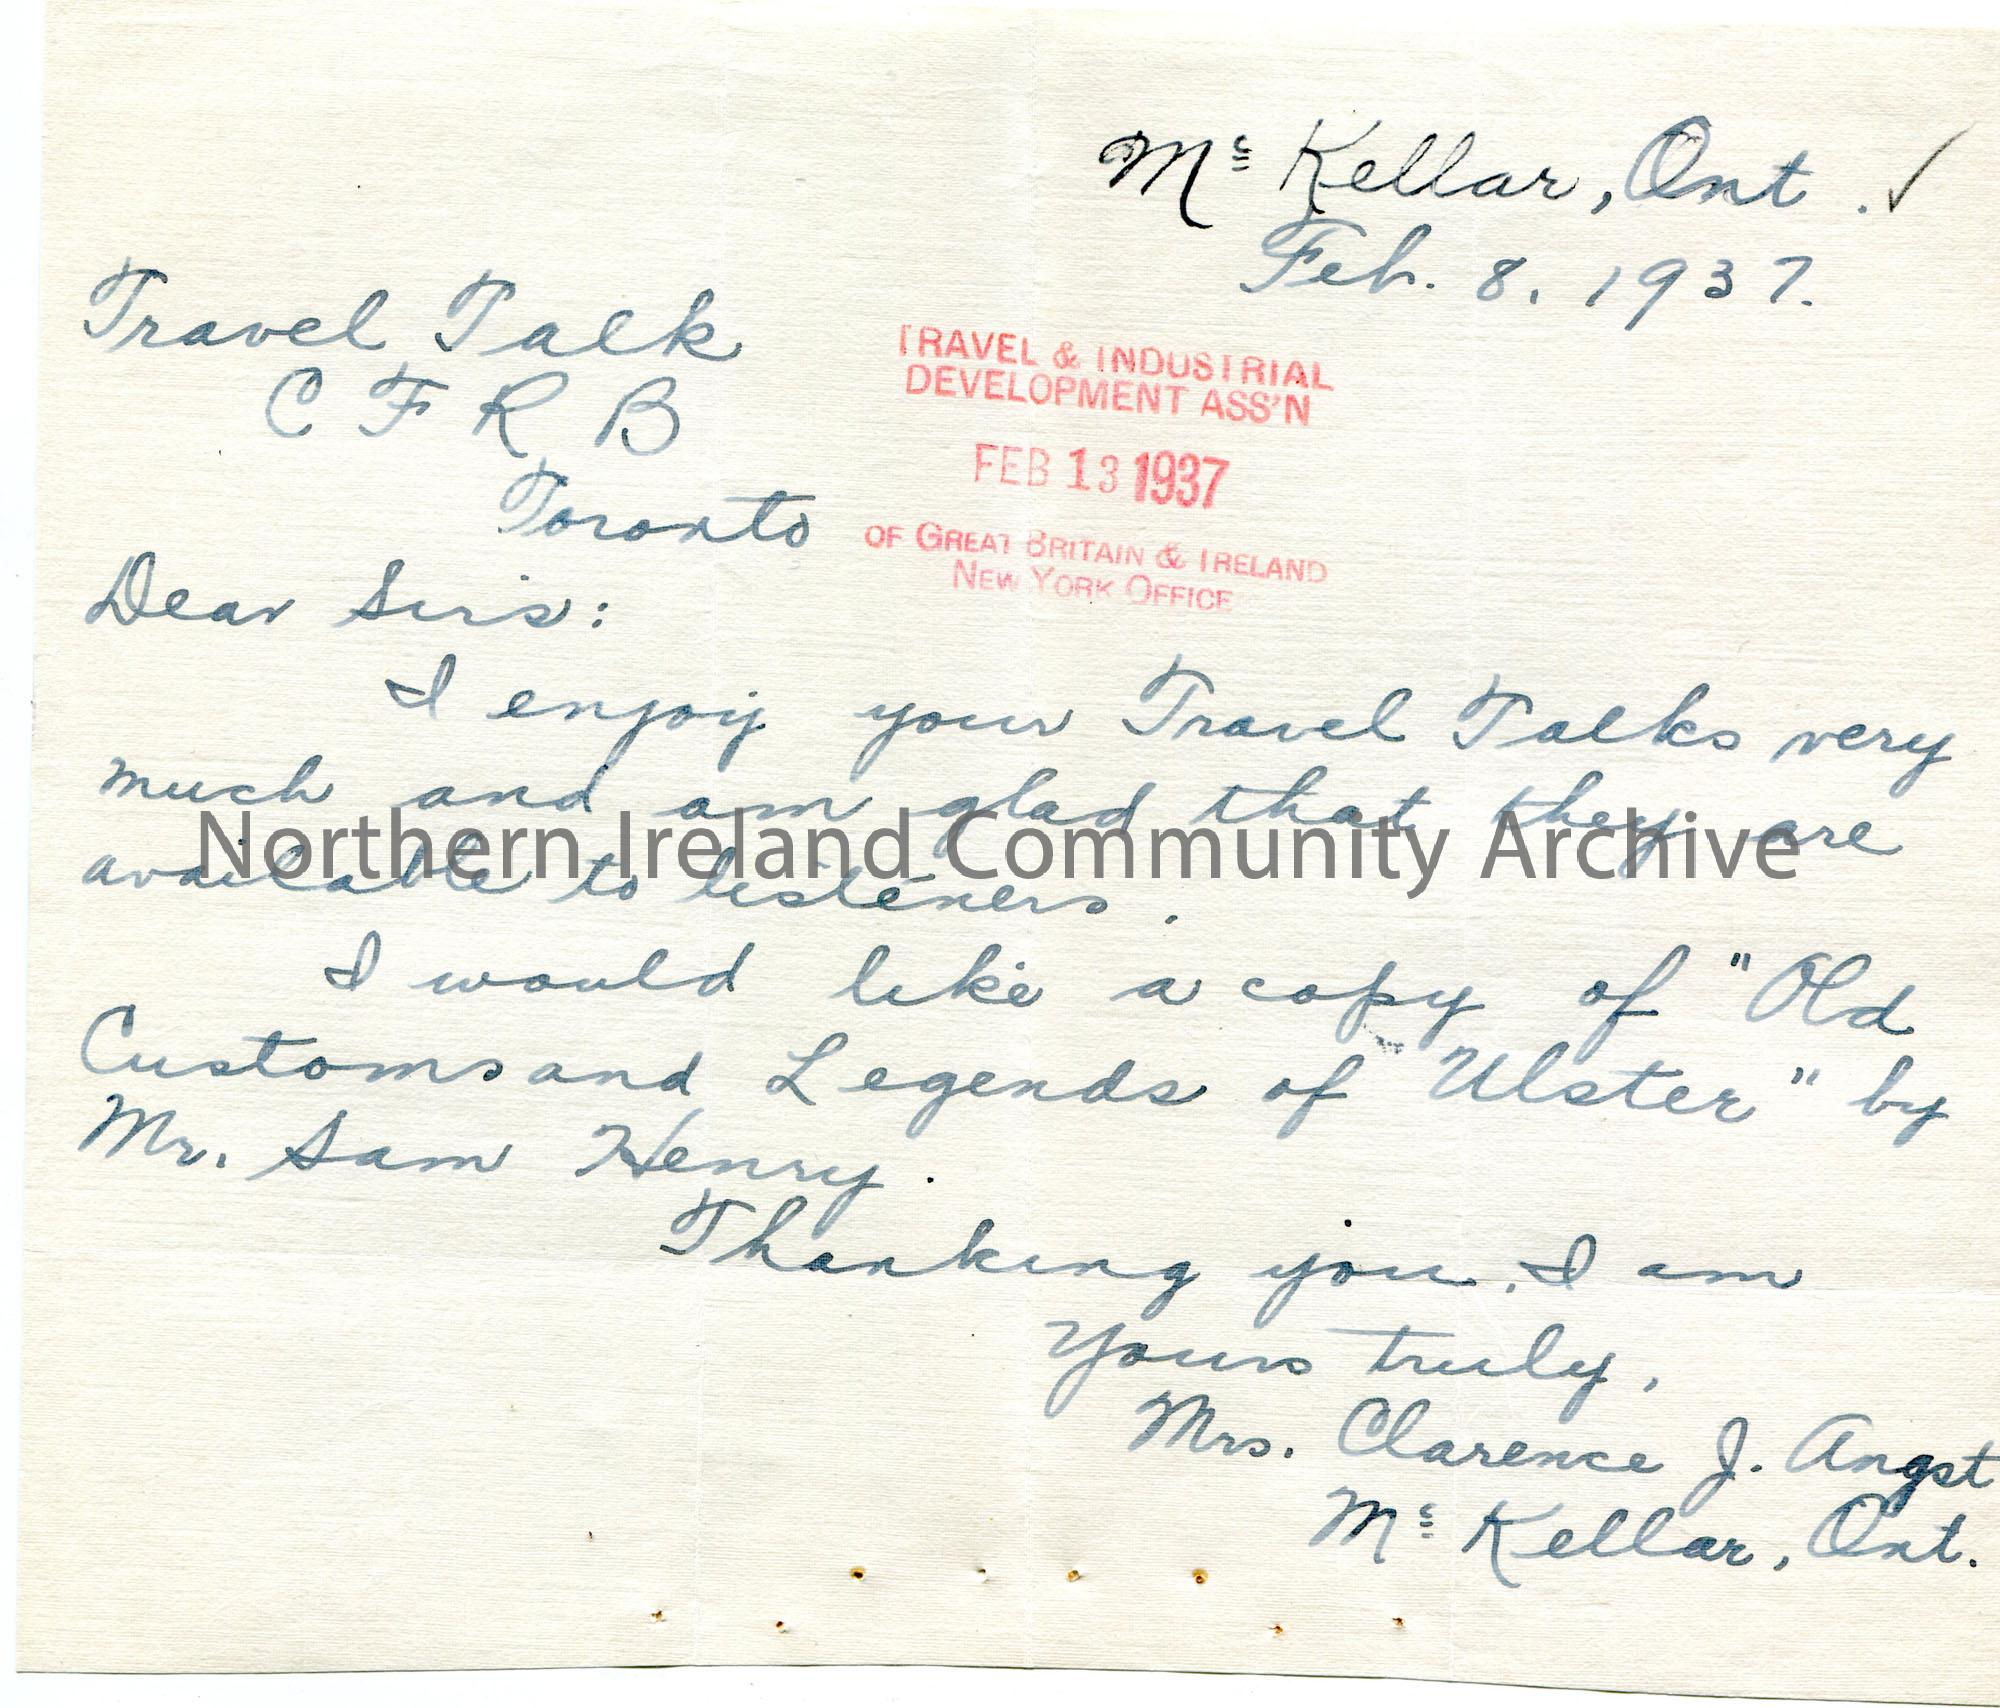 Mc Kellar, Ont.
Feb. 8, 1937.
Travel Talk
C F R B
Toronto
TRAVEL & INDUSTRIAL
DEVELOPMENT ASS'N
FEB 13 1937
OF GREAT BRITAIN & IRELAND
NEW YORK OFFICE
Dear Sirs:
I enjoy your Travel Talks very
much and am glad that they are
Northern Ireland Community Archive
available to listeners.
I would like a copy of "Old
Customs and Legends of Ulster" by
Mr. Sam Henry.
Thanking you, I am
Yours truly,
Mrs. Clarence J. Angst
Mc Kellar, Ont.